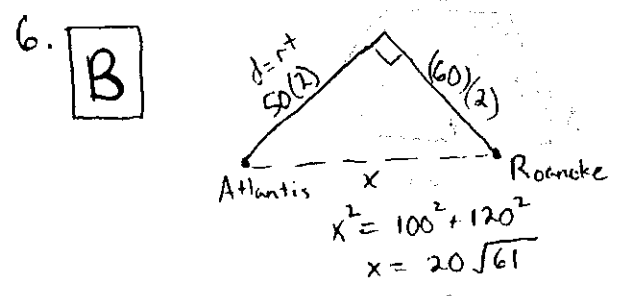 6.
B
d=rt
50(2)
(60)(2)
Atlantis
x
Roanoke
x² = 100² + 120²
x = 20√61